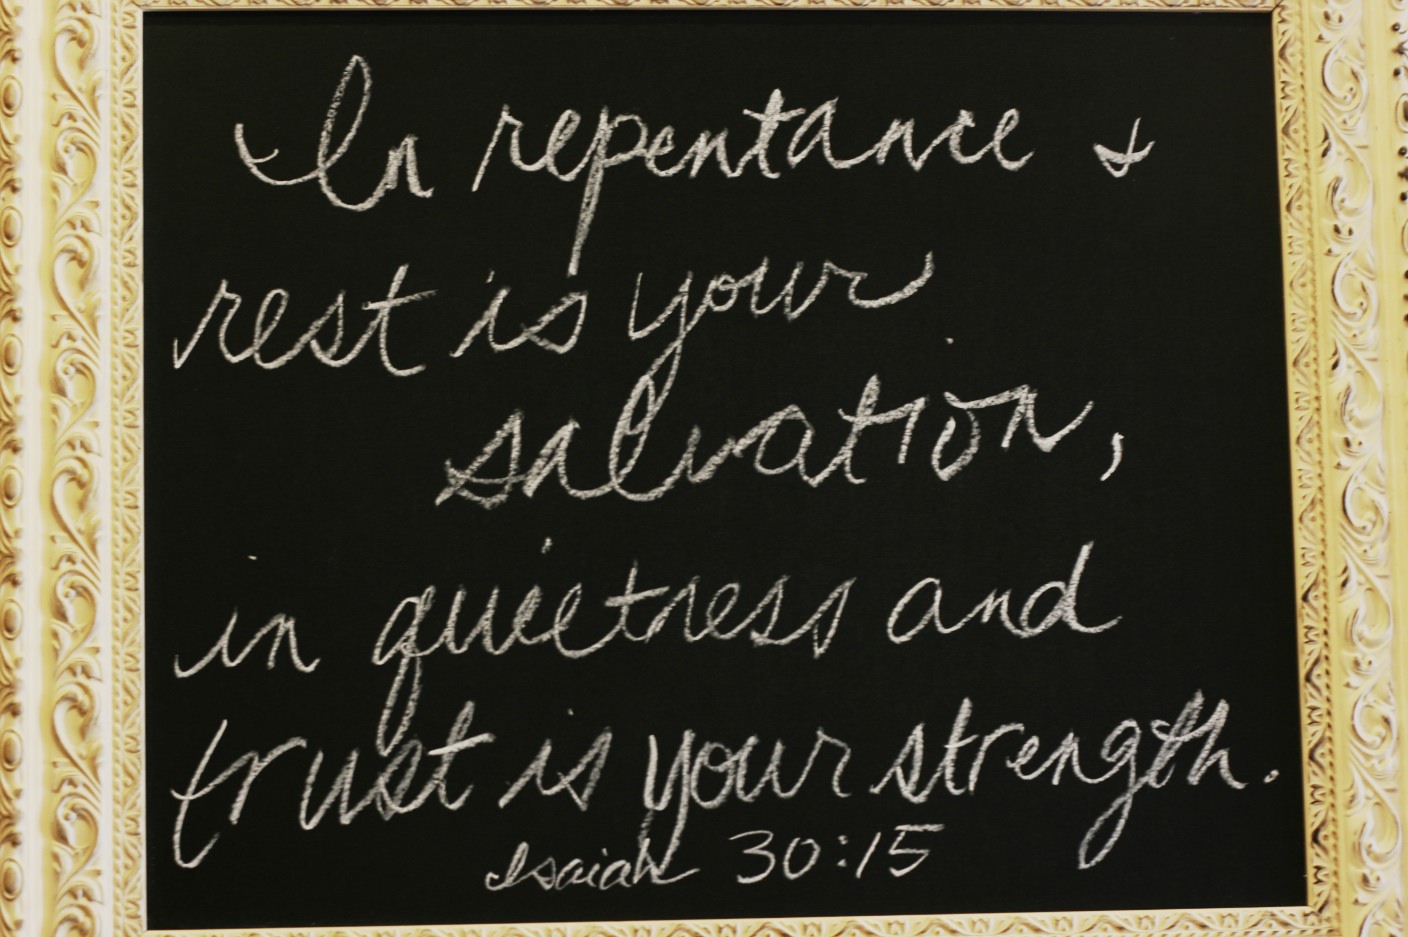 In repentance &
rest is your
salvation,
in quietness and
trust is your strength.
Isaiah 30:15